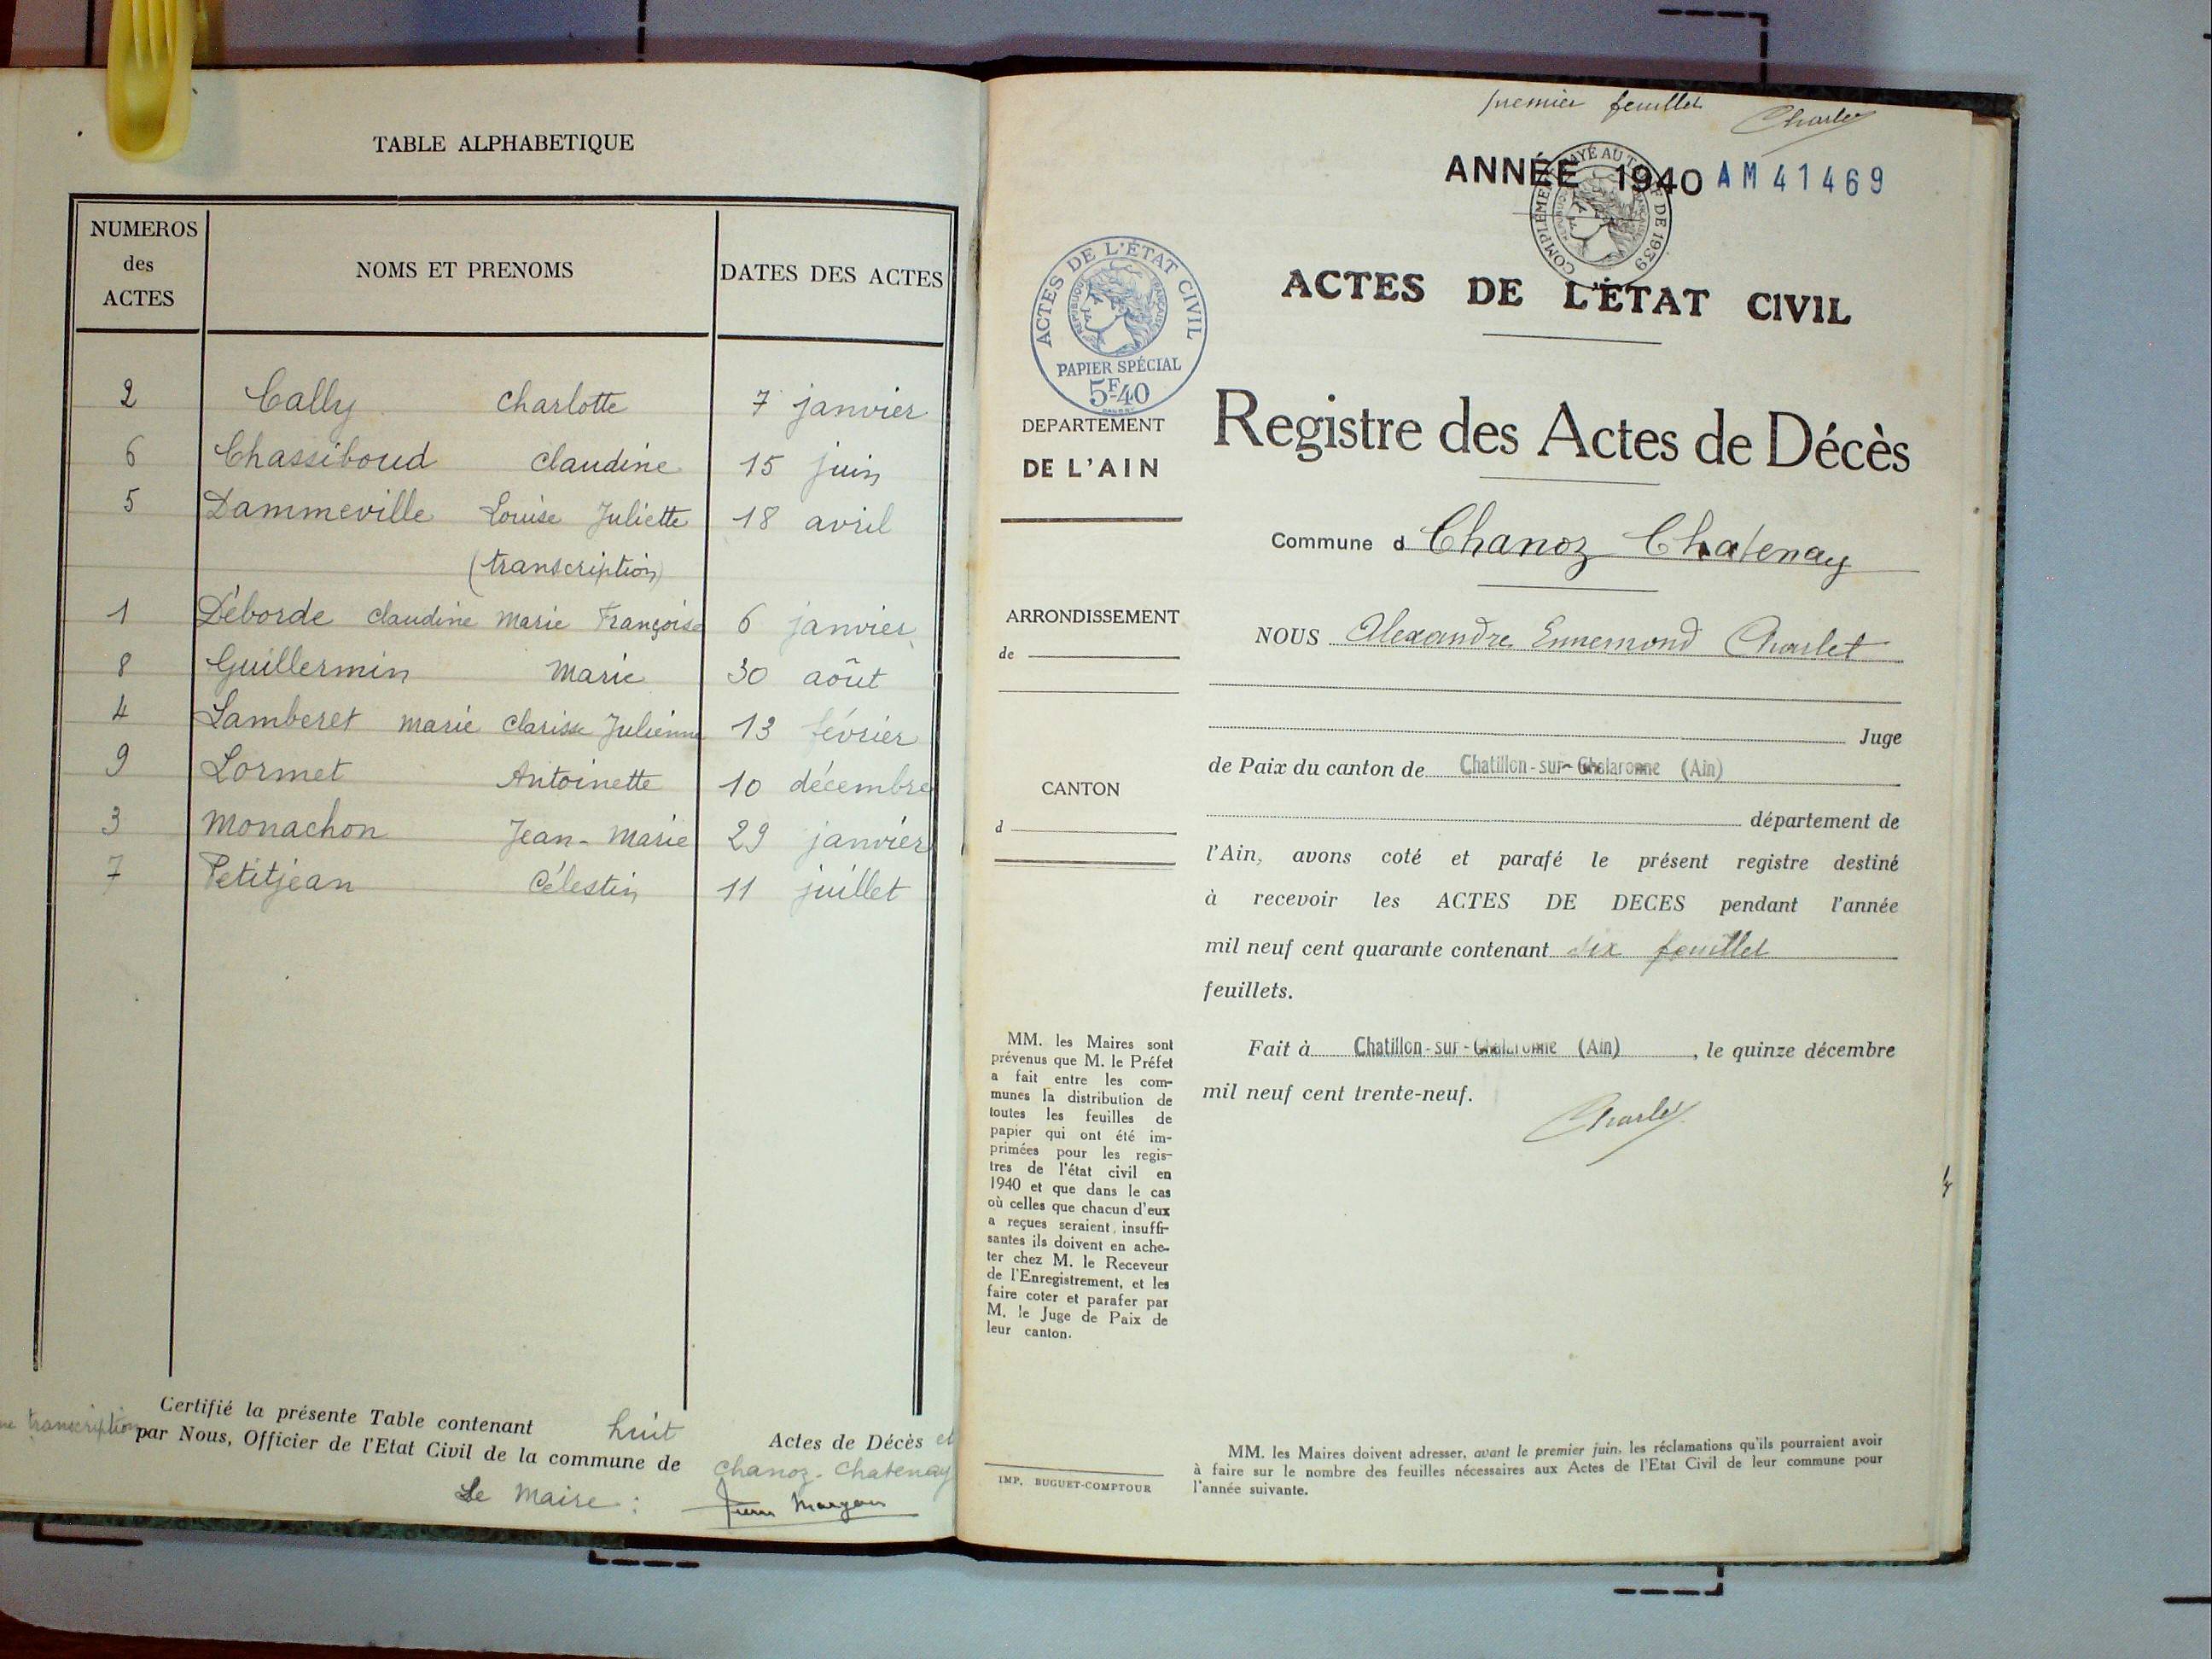 TABLE ALPHABETIQUE
NUMEROS des ACTES
NOMS ET PRENOMS
DATES DES ACTES
2 Cally Charlotte 7 janvier
6 Chassiboud Claudine 15 juin
5 Dammeville Louise Juliette 18 avril
(transcription)
1 Déborde Claudine Marie Françoise 6 janvier
8 Guillermin Marie 30 août
4 Lamberet Marie Clarisse Julienne 13 février
9 Lormet Antoinette 10 décembre
3 Monachon Jean-Marie 29 janvier
7 Petitjean Célestin 11 juillet
Certifié la présente Table contenant huit Actes de Décès et
transcription par Nous, Officier de l'Etat Civil de la commune de Chanoz-Chatenay
Le Maire :
premier feuillet Charlet
ANNÉE 1940 AM 41469
COMPLÉMENT PAYÉ AU DE 1939
ACTES DE L'ÉTAT CIVIL
RÉPUBLIQUE FRANÇAISE
PAPIER SPÉCIAL
5F.40
ACTES DE L'ÉTAT CIVIL
DEPARTEMENT
DE L'AIN
Registre des Actes de Décès
Commune d Chanoz Chatenay
ARRONDISSEMENT
de
CANTON
d
NOUS Alexandre Ennemond Charlet
Juge
de Paix du canton de Chatillon-sur-Chalaronne (Ain)
département de
l'Ain, avons coté et parafé le présent registre destiné
à recevoir les ACTES DE DECES pendant l'année
mil neuf cent quarante contenant six feuillet
feuillets.
Fait à Chatillon-sur-Chalaronne (Ain), le quinze décembre
mil neuf cent trente-neuf.
Charlet
MM. les Maires sont
prévenus que M. le Préfet
a fait entre les com-
munes la distribution de
toutes les feuilles de
papier qui ont été im-
primées pour les regis-
tres de l'état civil en
1940 et que dans le cas
où celles que chacun d'eux
a reçues seraient insuffi-
santes ils doivent en ache-
ter chez M. le Receveur
de l'Enregistrement, et les
faire coter et parafer par
M. le Juge de Paix de
leur canton.
IMP. BUGUET-COMPTOUR
MM. les Maires doivent adresser, avant le premier juin, les réclamations qu'ils pourraient avoir
à faire sur le nombre des feuilles nécessaires aux Actes de l'Etat Civil de leur commune pour
l'année suivante.